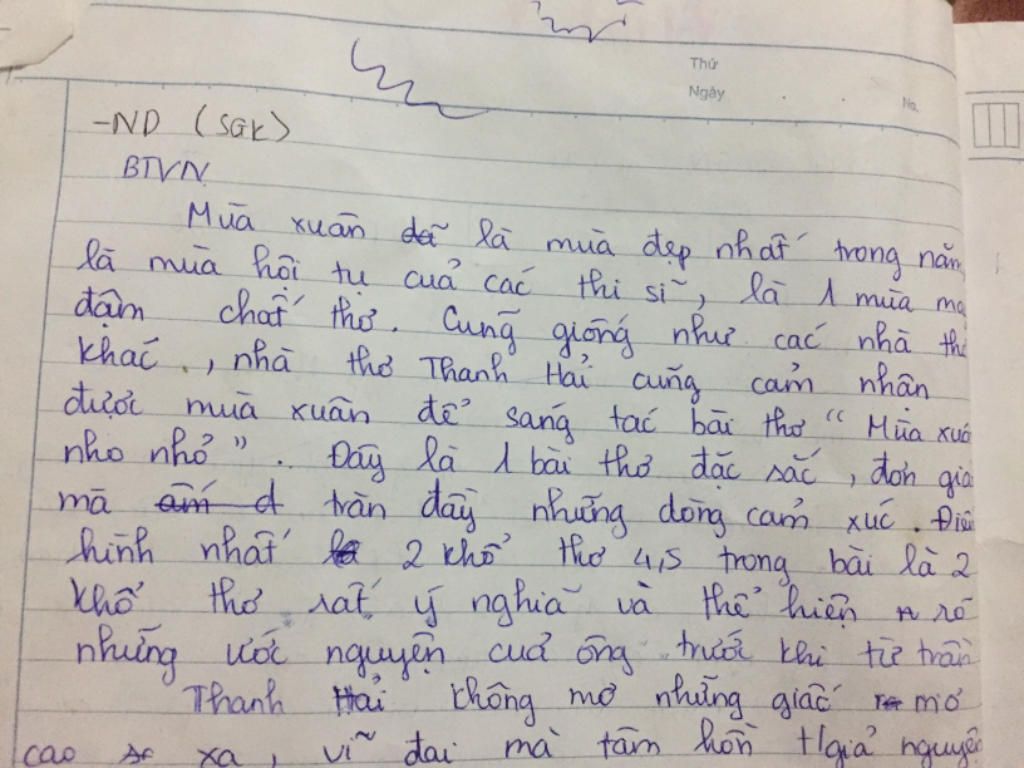 Thứ
Ngày
No.
-ND (SGK)
BTVN
Mùa xuân là mùa đẹp nhất trong năm
là mùa hội tụ của các thi sĩ, là 1 mùa
đậm chất thơ. Cũng giống như các nhà
khác, nhà thơ Thanh Hải cũng cảm nhận
được mùa xuân để sáng tác bài thơ "Mùa
nho nhỏ". Đây là 1 bài thơ đặc sắc, đơn
mà tràn đầy những dòng cảm xúc.
hình nhất 2 khổ thơ 4,5 trong bài là 2
khổ thơ rất ý nghĩa và thể hiện rõ
những ước nguyện của ông trước khi từ trần
Thanh Hải không mơ những giấc mơ
cao xa, vĩ đại mà tâm hồn t/giả